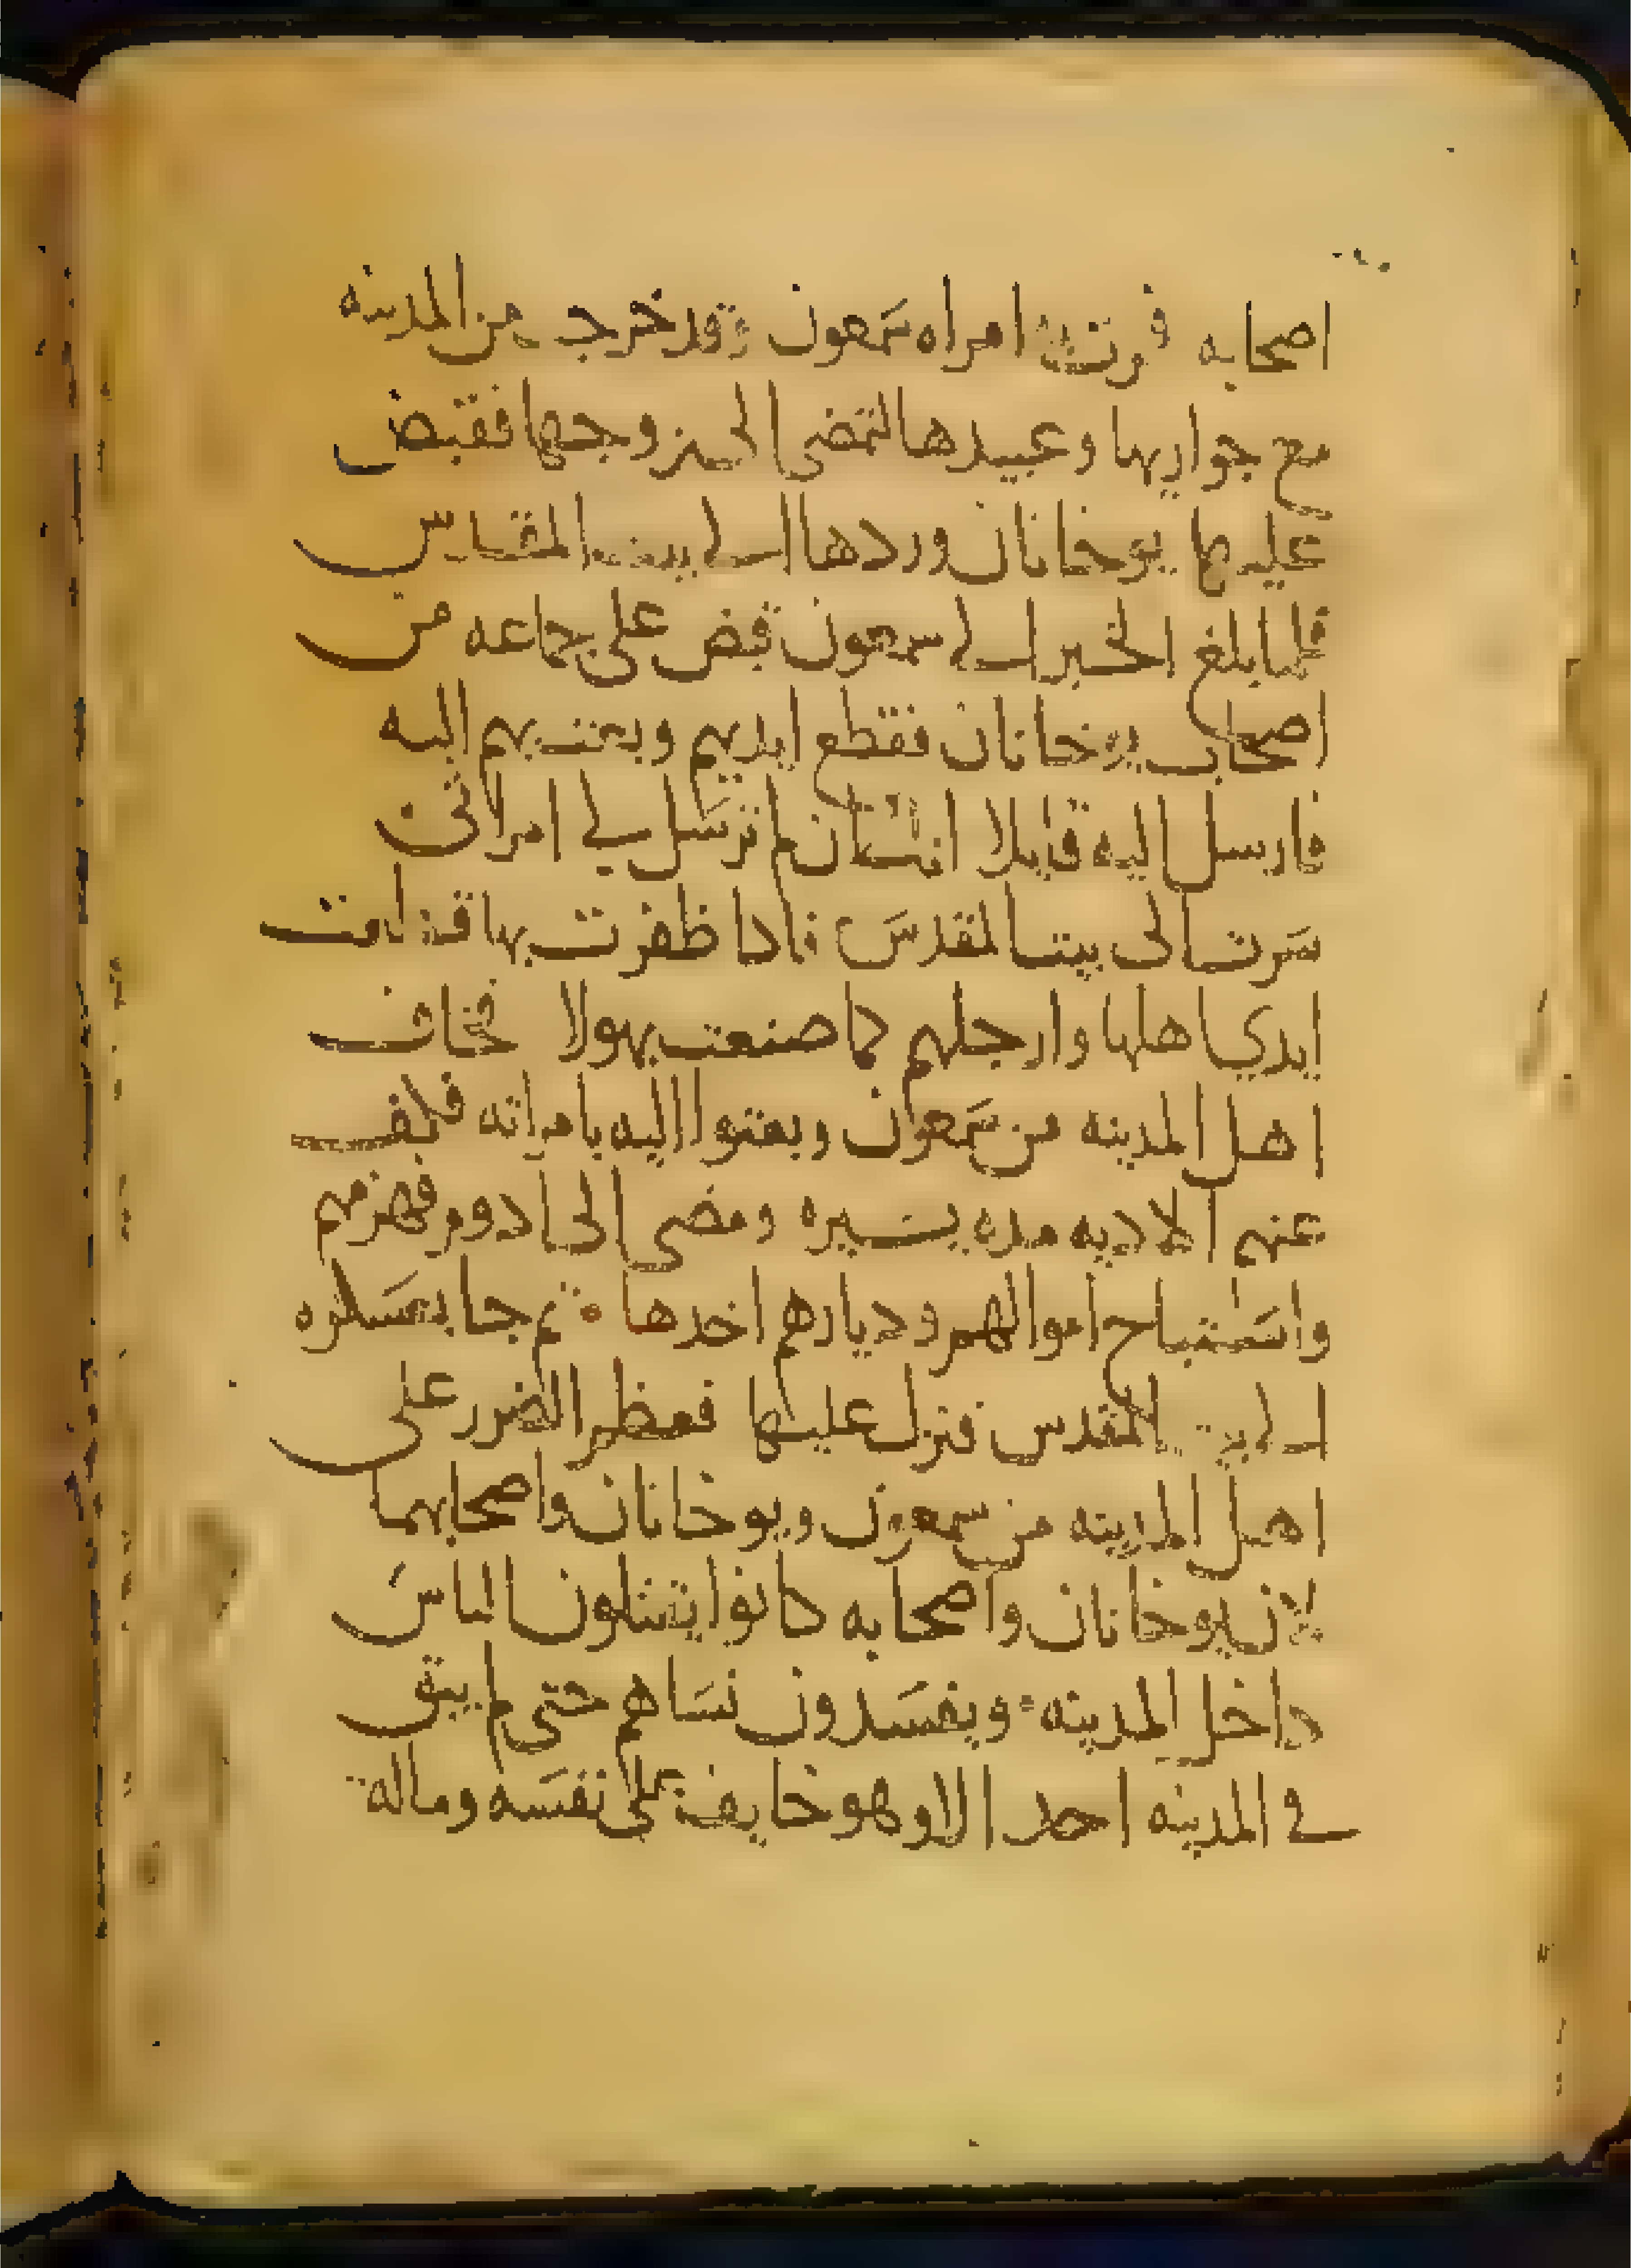 اصحابه فرت امراه سمعون وقد خرجت من المدينه
مع جواريها وعبيدها لتمضى الى زوجها فقبض
عليها يوخانان وردها الى بيت المقدس
فلما بلغ الخبر الى سمعون قبض على جماعه من
اصحاب يوخانان فقطع ايديهم وبعث بهم اليه
فارسل اليه قايلا ان لم ترسل لي امراتى
سرت الى بيت المقدس فادا ظفرت بها قطعت
ايدي اهلها وارجلهم كما صنعت بهولا فخاف
اهل المدينه من سمعون وبعتوا اليه بامراته فكف
عنهم الاديه مده يسيره ومضى الى ادوم فهزمهم
واستباح اموالهم وديارهم اخدها ثم جا بعسكره
الى بيت المقدس فنزل عليها فعظم الضرر على
اهل المدينه من سمعون ويوخانان واصحابهما
لان يوخانان واصحابه كانوا يقتلون الناس
داخل المدينه ويفسدون نساهم حتى لم يبق
في المدينه احد الا وهو خايف على نفسه وماله